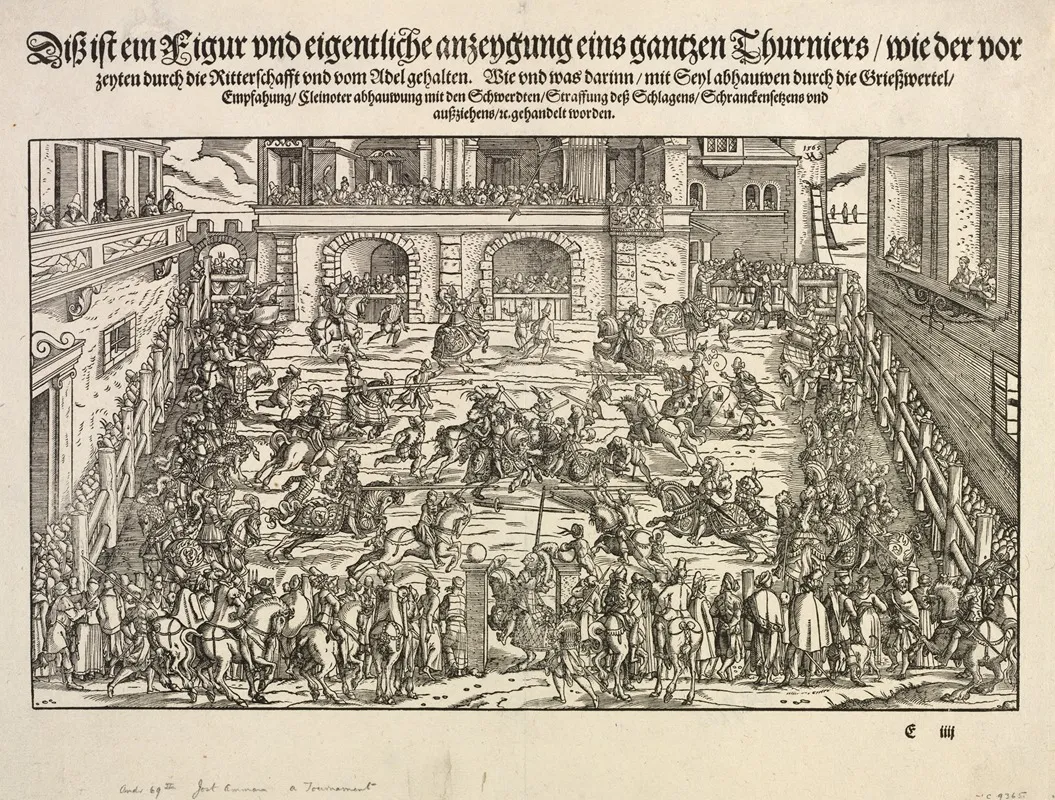 Diß ist ein Figur vnd eigentliche anzeygung eins gantzen Thurniers / wie der vor
zeyten durch die Ritterschafft vnd vom Adel gehalten. Wie vnd was darinn / mit Seyl abhauwen durch die Grießwertel /
Empfahung / Cleinoter abhauwung mit den Schwerdten / Straffung deß Schlagens / Schranckensetzens vnd
außziehens / ꝛc. gehandelt worden.
1565
E iiij
Andr 69 Jost Amman a Tournament